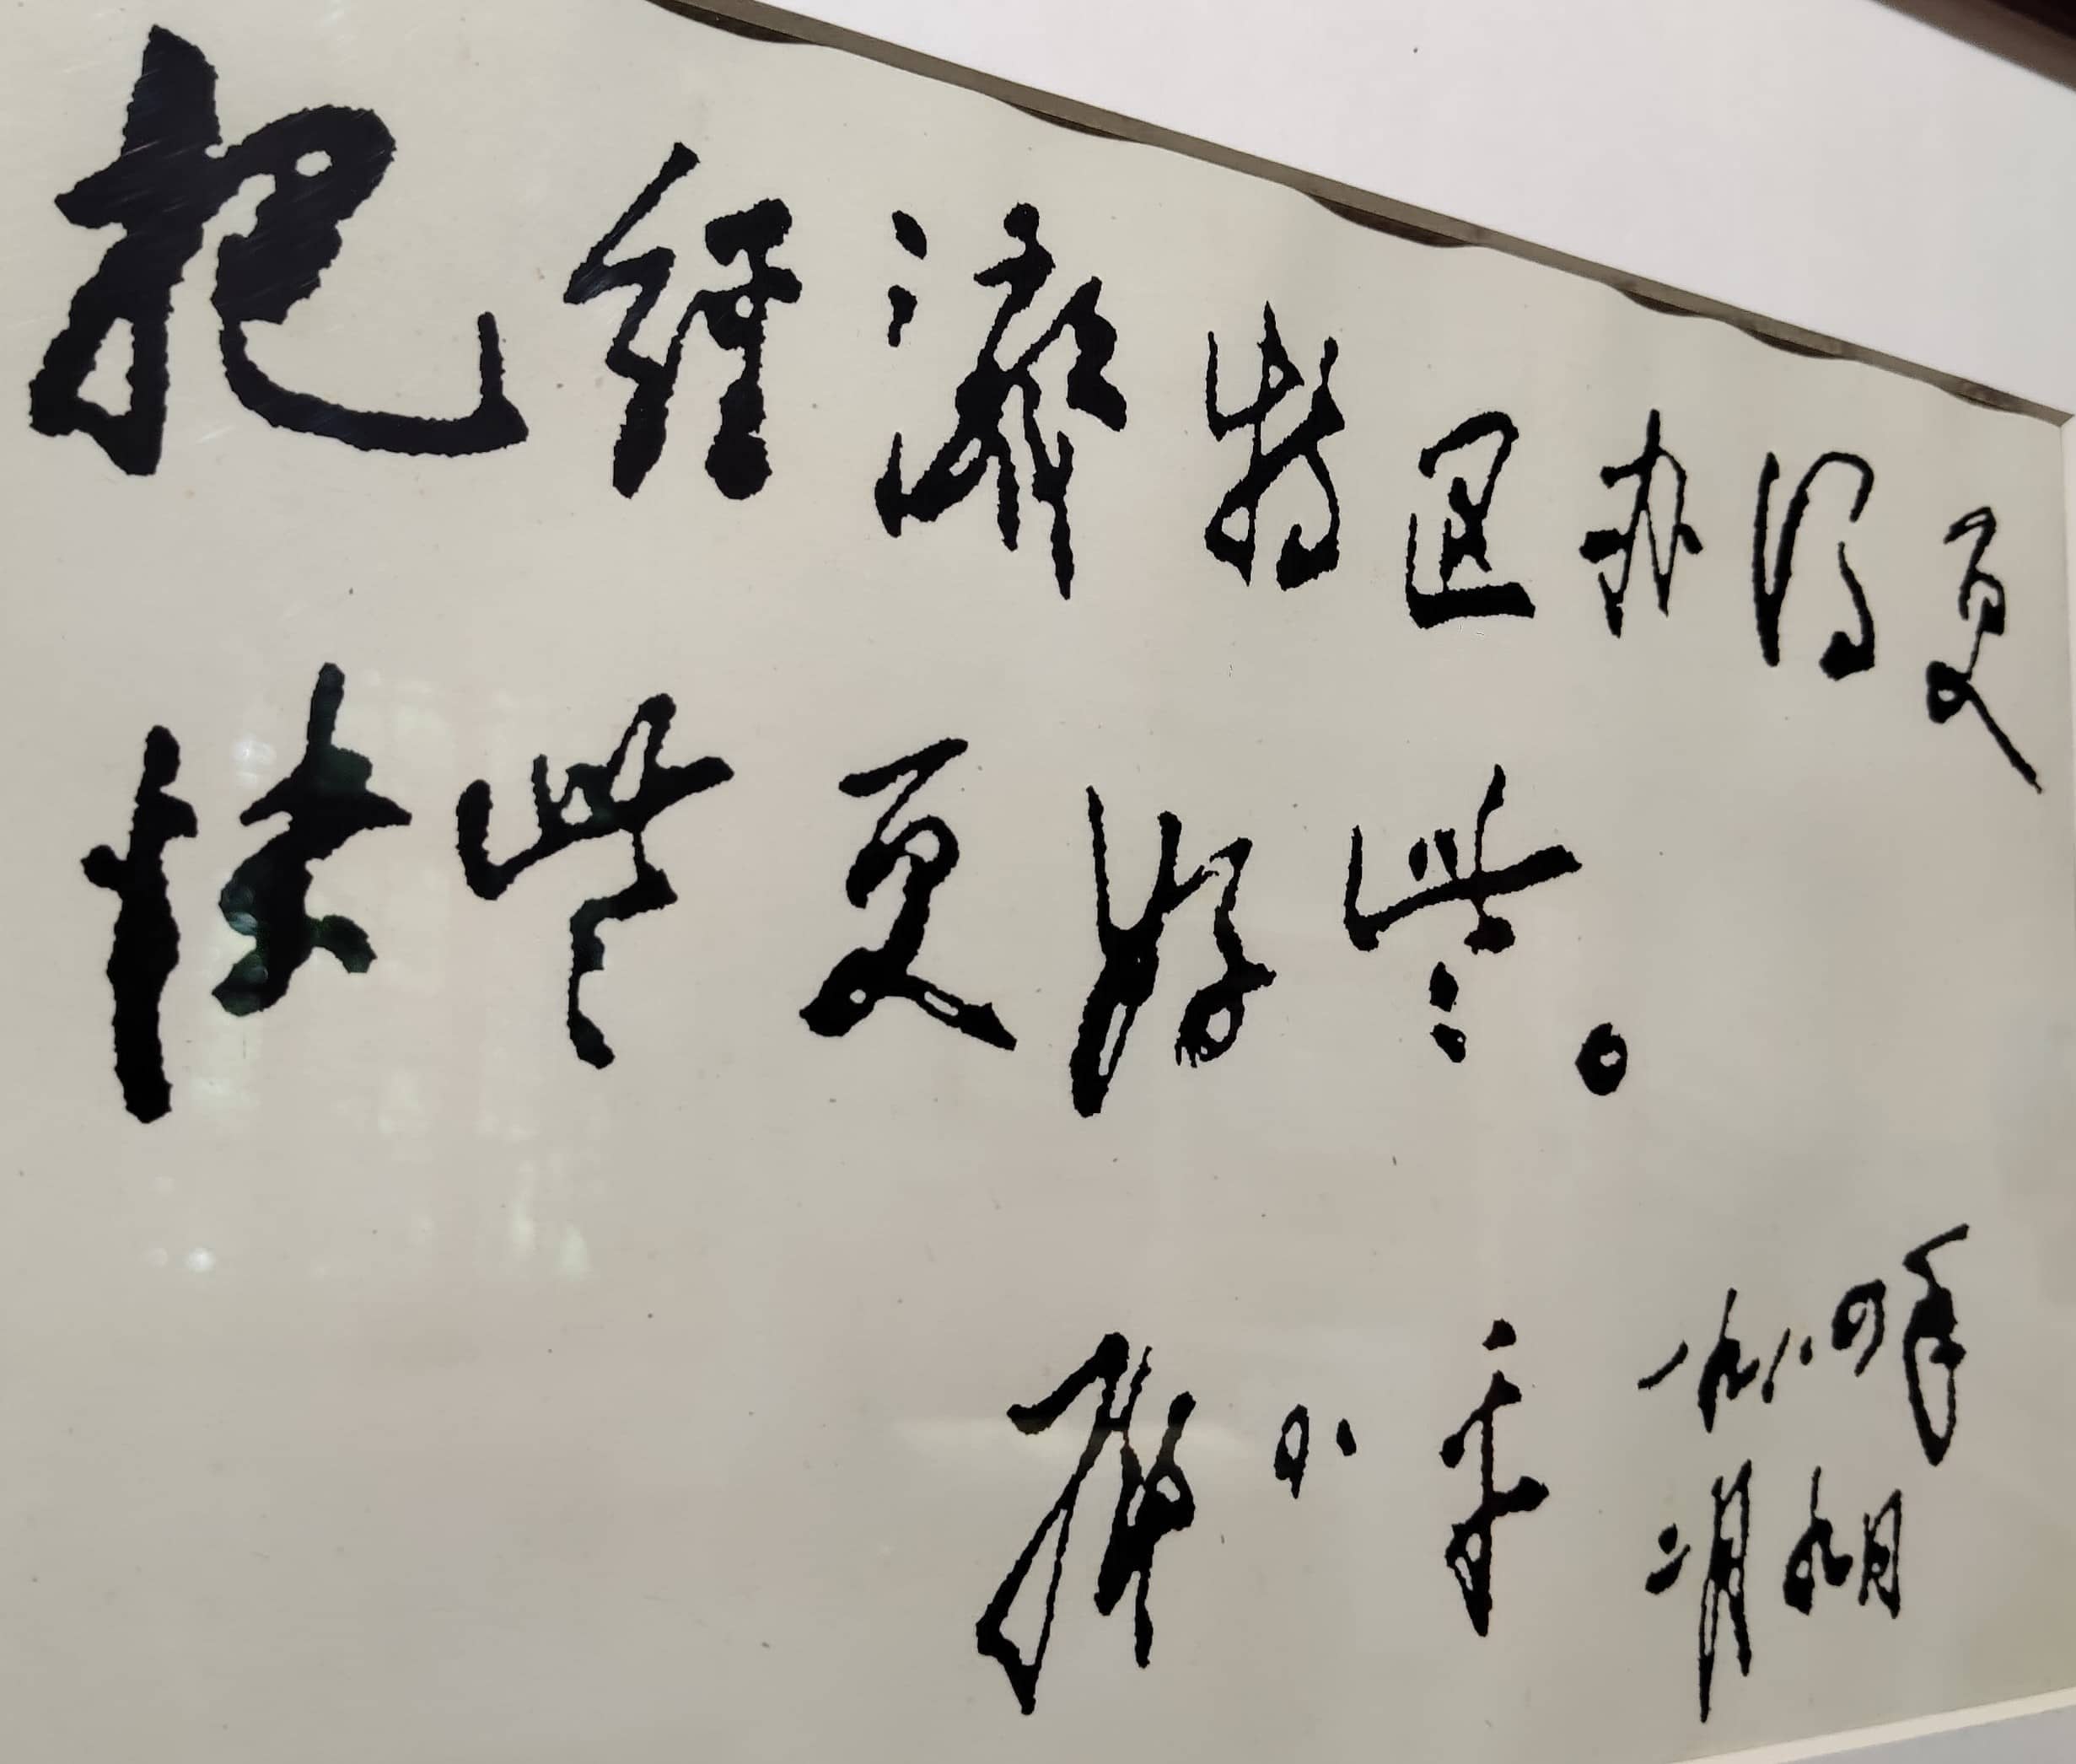 把经济特区办得更
快些更好些。
邓小平
一九八四年
二月九日